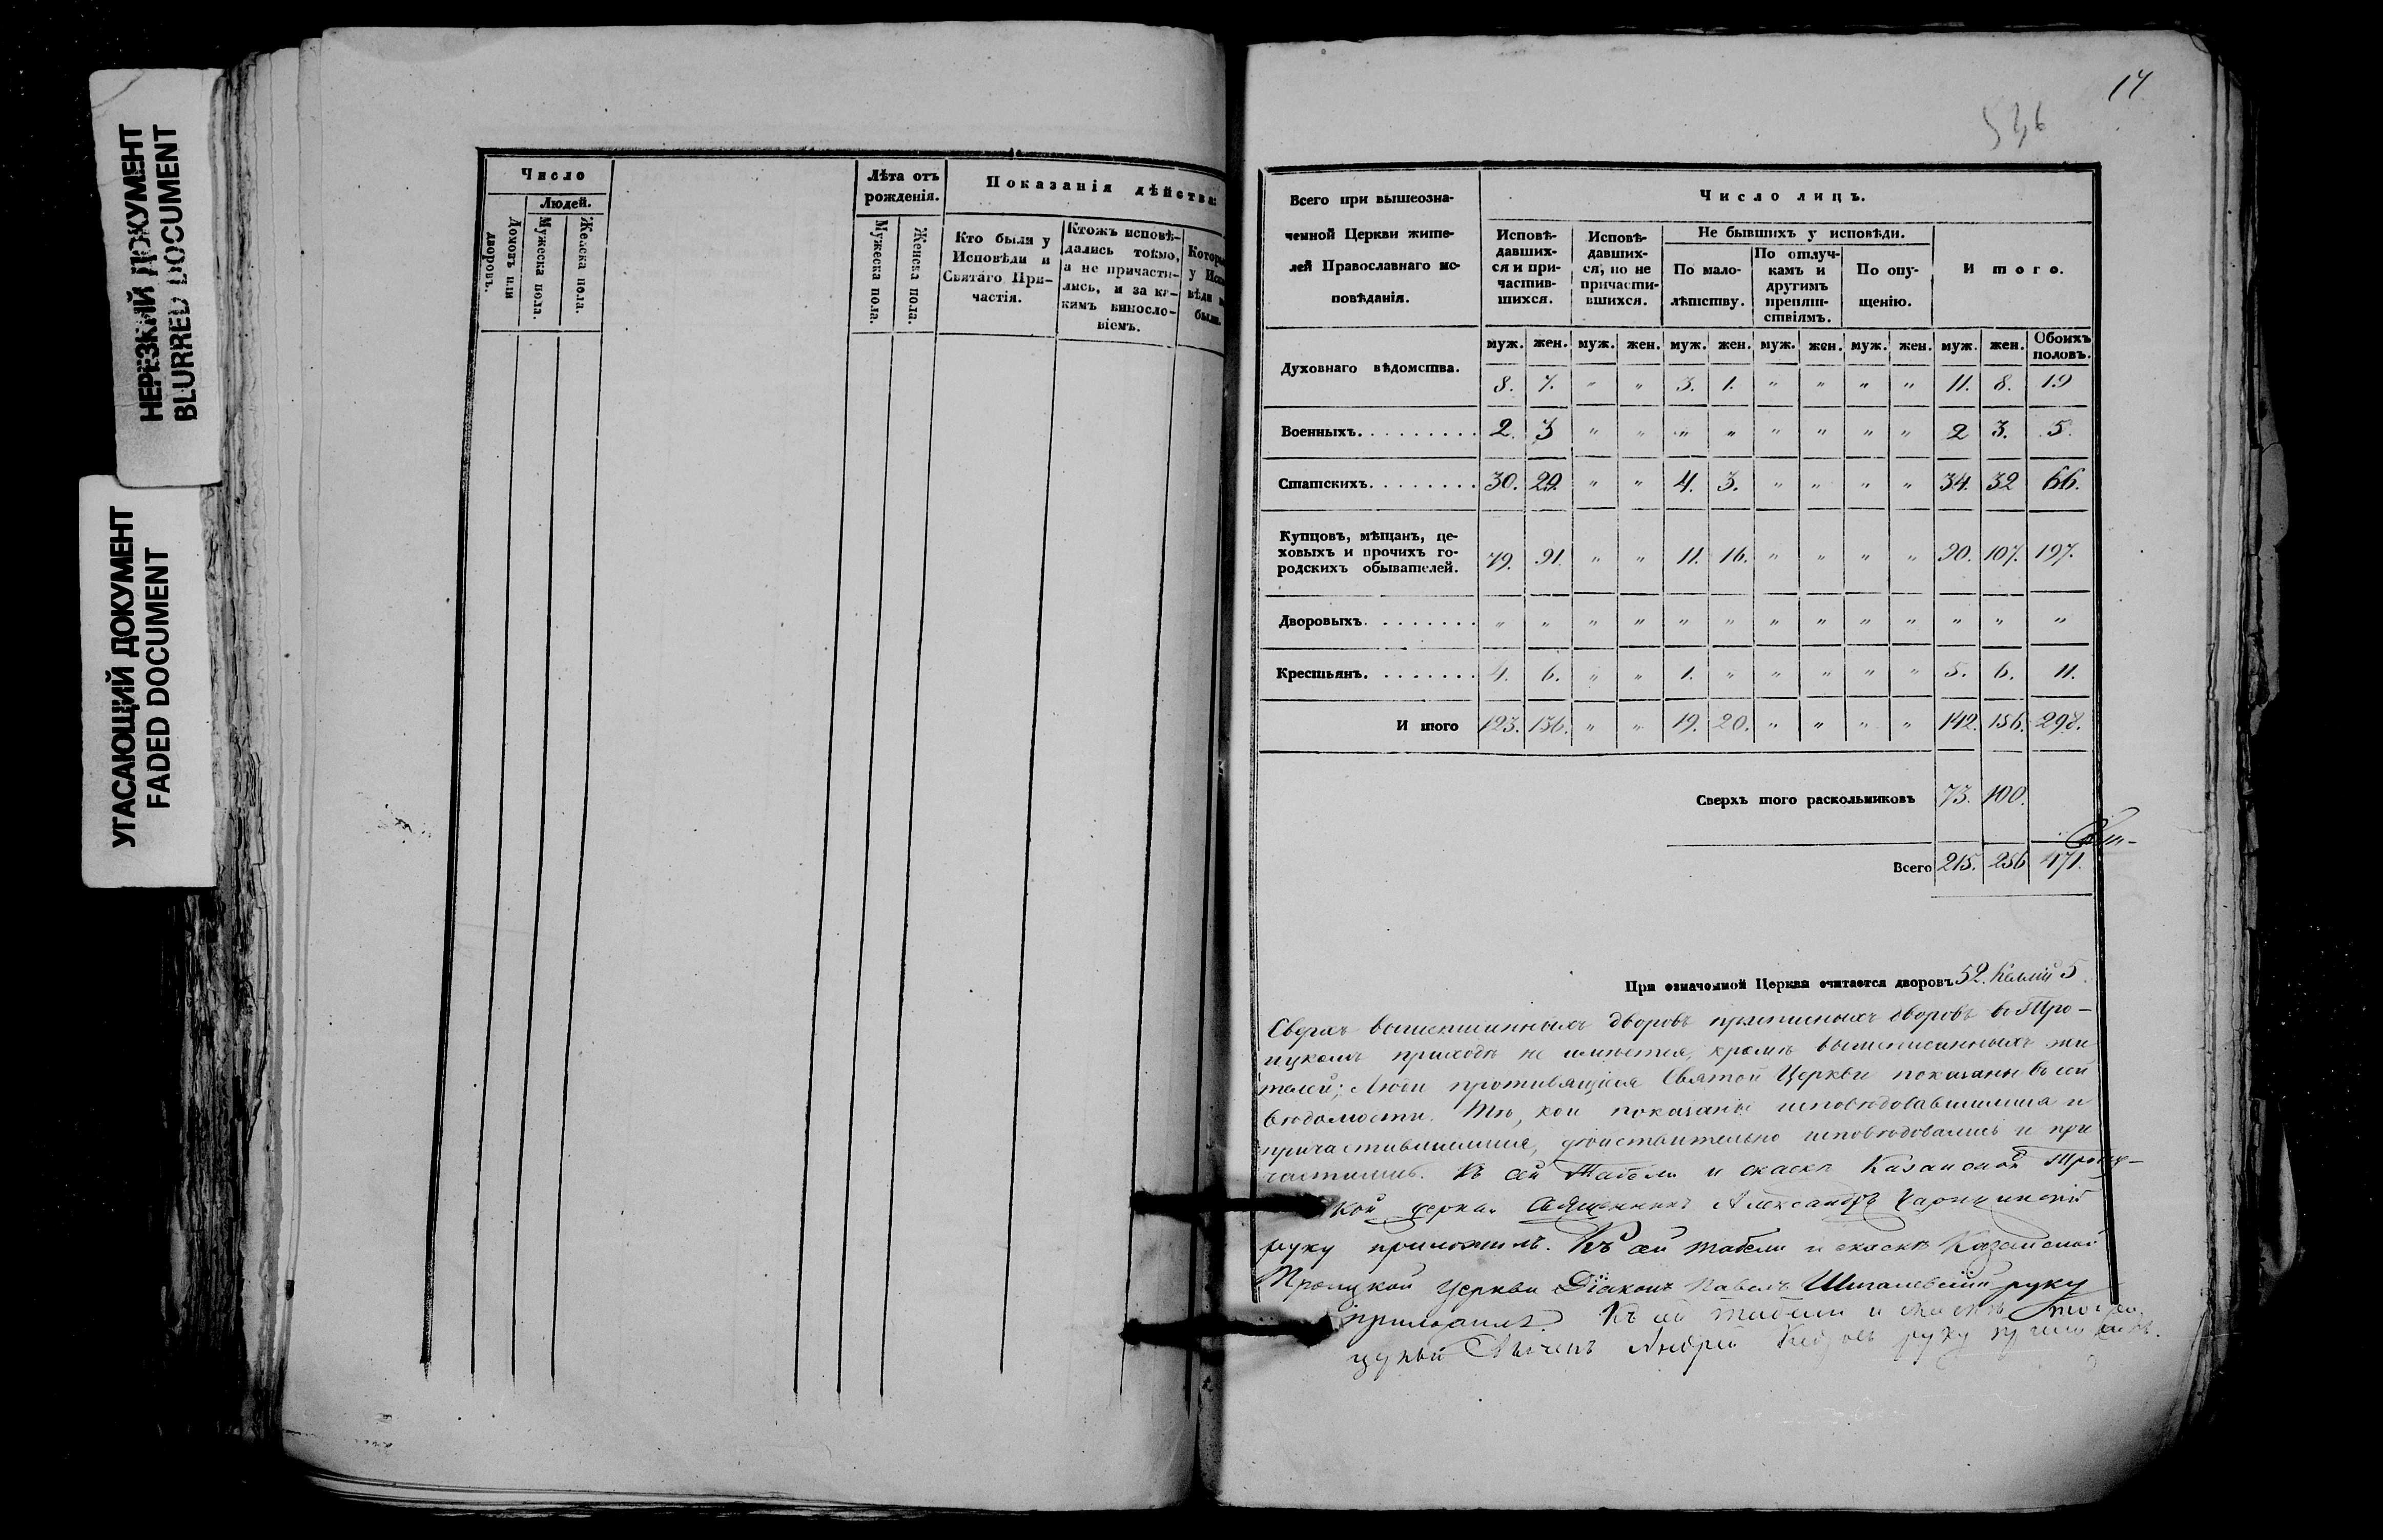 НЕРЕЗКИЙ ДОКУМЕНТ
BLURRED DOCUMENT
УГАСАЮЩИЙ ДОКУМЕНТ
FADED DOCUMENT
Число
Людей.
Домовъ или дворовъ.
Мужеска пола.
Женска пола.
Лѣта отъ рожденія.
Мужеска пола.
Женска пола.
Показанія дѣйства:
Кто были у
Исповѣди и
Святаго При-
частія.
Ктожъ исповѣ-
дались токмо,
а не причасти-
лись, и за ка-
кимъ винослo-
віемъ.
у
были.
17
536
Всего при вышеозна-
ченной Церкви жите-
лей Православнаго ис-
повѣданія.
Число лицъ.
Исповѣ-
давших-
ся и при-
частив-
шихся.
Исповѣ-
давших-
ся, но не
причасти-
вшихся.
Не бывшихъ у исповѣди.
По мало-
лѣтству.
По отлуч-
камъ и
другимъ
препят-
ствіямъ.
По опу-
щенію.
И того.
муж. жен. муж. жен. муж. жен. муж. жен. муж. жен. муж. жен. Обоихъ половъ.
Духовнаго вѣдомства. 8. 7. " " 3. 1. " " " " 11. 8. 19
Военныхъ......... 2. 3 " " " " " " " " 2 3. 5.
Статскихъ........ 30. 29. " " 4. 3. " " " " 34. 32 66.
Купцовъ, мѣщанъ, це-
ховыхъ и прочихъ го-
родскихъ обывателей. 79. 91. " " 11. 16. " " " " 90. 107. 197.
Дворовыхъ........ " " " " " " " " " " " " "
Крестьянъ........ 4. 6. " " 1. " " " " " 5. 6. 11.
И того 123. 136. " " 19. 20. " " " " 142. 156. 298.
Сверхъ того раскольниковъ 73. 100.
Всего 215. 256 471.
При означенной Церкви считается дворовъ 52. Келлій 5
Сверхъ вышеписанныхъ дворовъ приписныхъ дворовъ въ Тро-
ицкомъ приходѣ не имѣется, кромѣ вышеписанныхъ жи
телей; Люди противящіеся Святой Церкви показаны въ сей
вѣдомости. Тѣ, кои показаны исповѣдовавшимися и
причастившимися, дѣйствительно исповѣдовались и при
частились. Къ сей Табели и сказкѣ Казанской Троиц-
кой церкви Священникъ Александръ
руку приложилъ. Къ сей табели и сказкѣ Казанской
Троицкой Церкви Діаконъ Павелъ руку
приложилъ. Къ сей табели и сказкѣ
Андрей руку приложилъ.